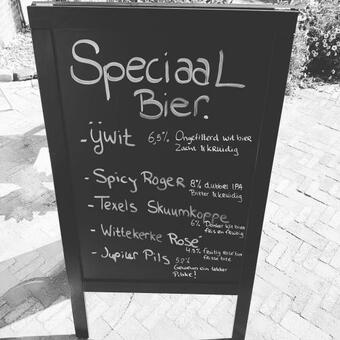 Speciaal
Bier.
- ÿwit 6,5% Ongefilterd wit bier
Zacht & kruidig
- Spicy Roger 8% dubbel IPA
Bitter & kruidig
- Texels Skuumkoppe
6% Donker wit bier
fris en
- Wittekerke Rosé
4.3% fruitig
frisse bite
- Jupiler Pils 5.2%
Gewoon een lekker
Pilske!